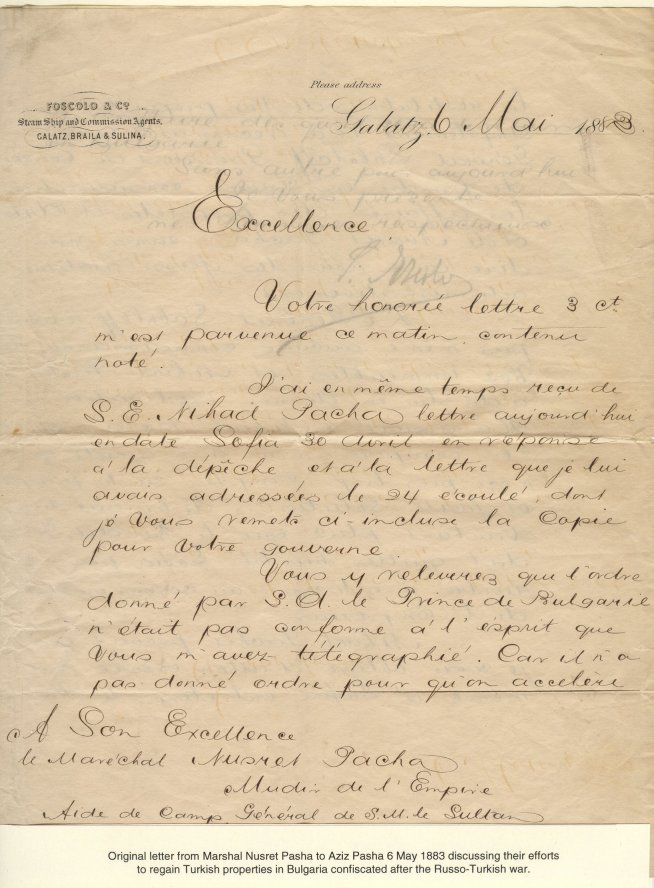 Please address
FOSCOLO & Co
Steam Ship and Commission Agents,
GALATZ, BRAILA & SULINA.
Galatz, 6 Mai 1883.
Excellence
Votre honorée lettre 3 ct
m'est parvenue ce matin, contenu
noté.
J'ai en même temps reçu de
S. E. Nihad Pacha lettre aujourd'hui
en date Sofia 30 Avril en réponse
à la dépêche et à la lettre que je lui
avais adressées le 24 écoulé, dont
je Vous remets ci-incluse la Copie
pour Votre gouverne
Vous y releverez que l'ordre
donné par S. A. le Prince de Bulgarie
n'était pas conforme à l'esprit que
Vous m'avez télégraphié. Car il n'a
pas donné ordre pour qu'on accelère
A Son Excellence
le Maréchal Nusret Pacha
Mudir de l'Empire
Aide de Camp Général de S. M. le Sultan
Original letter from Marshal Nusret Pasha to Aziz Pasha 6 May 1883 discussing their efforts
to regain Turkish properties in Bulgaria confiscated after the Russo-Turkish war.